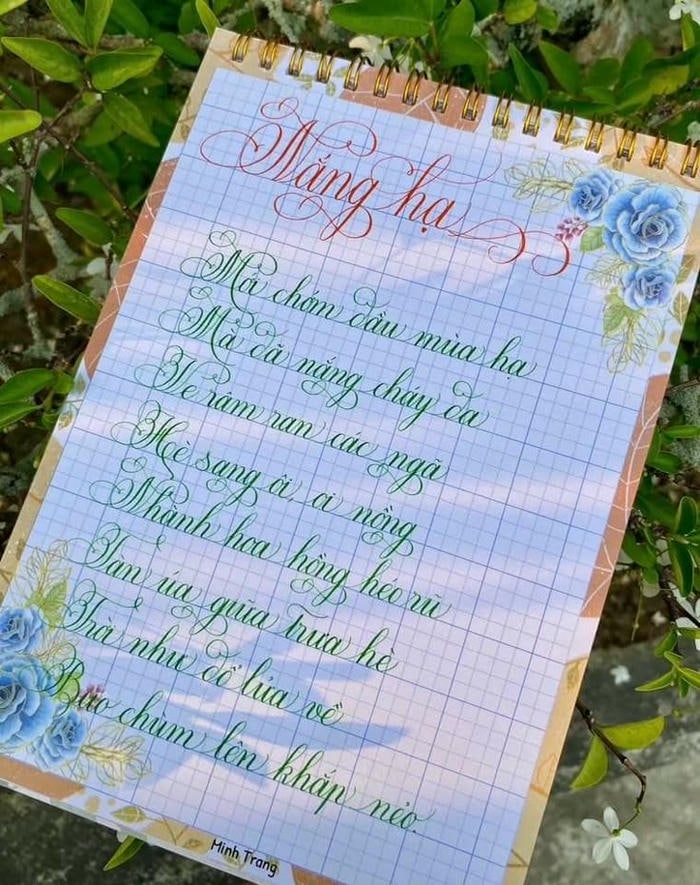 Nắng hạ
Mới chớm đầu mùa hạ
Mà đã nắng cháy da
Ve râm ran các ngã
Hè sang ôi ai nồng
Nhành hoa hồng héo rũ
Tàn úa giữa trưa hè
Trời như đổ lửa về
Bao chùm lên khắp nẻo.
Minh Trang